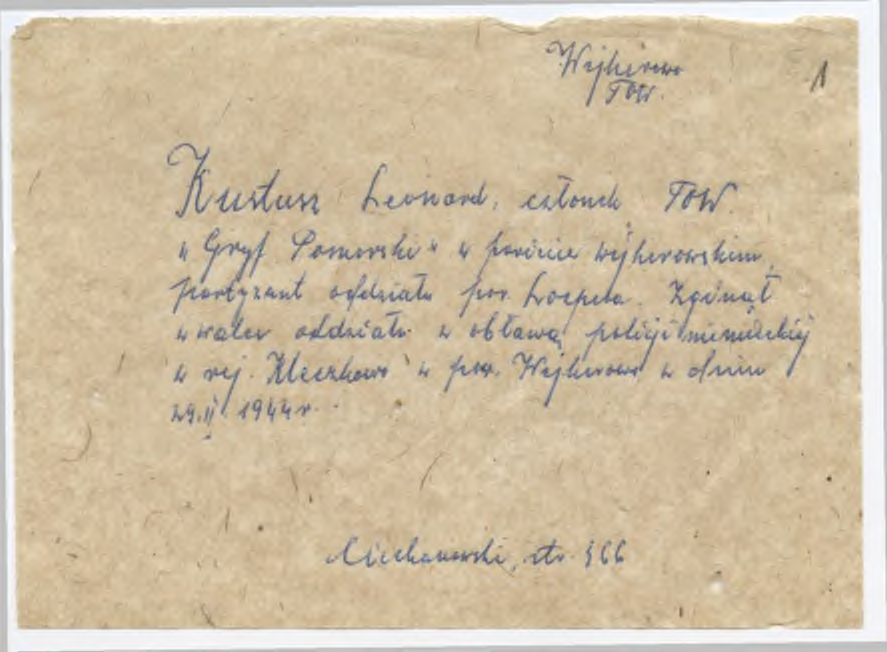 Wejherowo
TOW.
1
Kustusz Leonard, członek TOW.
"Gryf Pomorski" w powiecie wejherowskim,
partyzant oddziału por. Zginął
w walce oddziału z obławą policji niemieckiej
w rej. Kleczkowo w pow. Wejherowo w dniu
29.II 1944 r.
Ciechanowski, str. 366